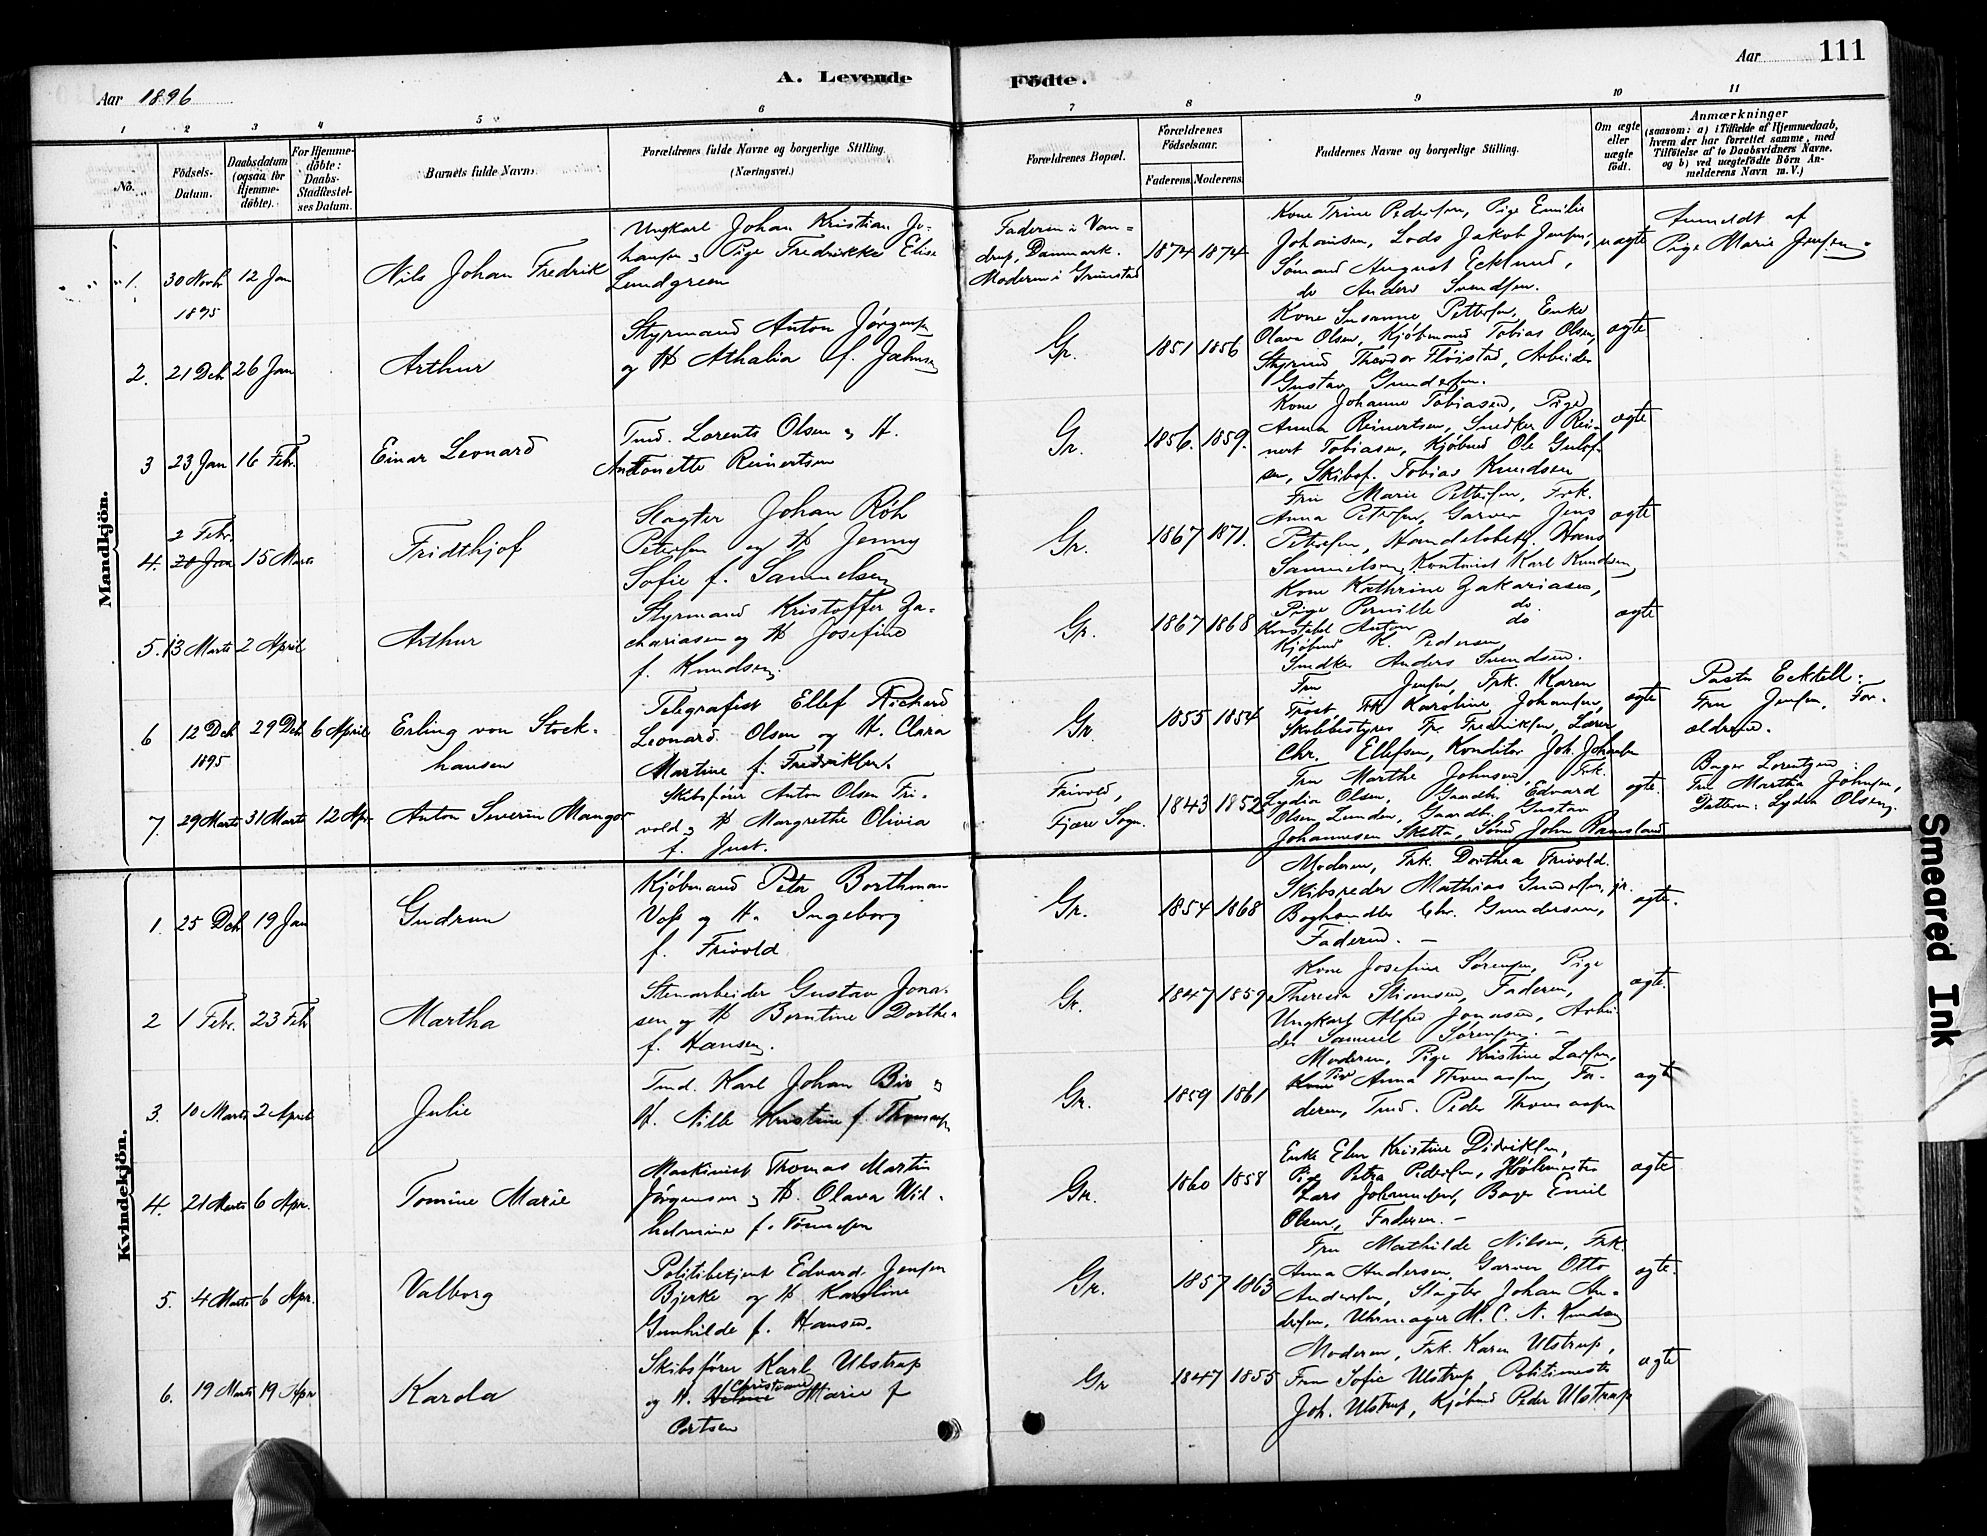 Aar 1896
A. Levende
Födte.
Aar
111
1 2 3 4 5 6 7 8 9 10 11
No.
Födsels-
Datum.
Daabsdatum
(ogsaa for
Hjemme-
döbte).
For Hjemme-
döbte:
Daabs-
Stadfæstel-
ses Datum.
Barnets fulde Navn.
Forældrenes fulde Navne og borgerlige Stilling.
(Næringsvei.)
Forældrenes Bopæl.
Forældrenes
Födselsaar.
Faderens. Moderens.
Faddernes Navne og borgerlige Stilling.
Om ægte
eller
uægte
födt.
Anmærkninger
(saasom: a) i Tilfælde af Hjemmedaab,
hvem der har forrettet samme, med
Tilföielse af to Daabsvidners Navne.
og b) ved uægtefödte Börn An-
melderens Navn m. V.)
Mandkjön.
1. 30 Novbr 1895
12 Jan
Nils Johan Fredrik
Ungkarl Johan Kristian Jo-
hansen og Pige Fredrikke Elise
Lundgreen
Faderen i Vam-
drup, Danmark.
Moderen i Grimstad
1874 1874
Kone Trine Pedersen, Pige Emilie
Johansen, Lods Jakob Jensen,
Sömand August Ecklund,
do Anders Svendsen.
uægte
Anmeldt af
Pige Marie Jensen
2. 21 Deb 26 Jan
Arthur
Styrmand Anton Jørgensen
og H Athalia f.
Gr.
1851 1856
Kone Susanne Pettersen, Enke
Olava Olsen, Kjöbmand Tobias Olsen,
Styrmd Theodor Fløistad, Arbeider
Gustav Gundersen.
ægte
3 23 Jan 16 Febr.
Einar Leonard
Tmd. Lorents Olsen og H.
Antonette Reinertsen
Gr.
1856. 1859.
Kone Johanne Tobiasen, Pige
Anna Reinertsen, Snedker Rei-
nert Tobiasen, Kjöbmd Ole Gulof-
sen, Skibsf. Tobias Knudsen
ægte
4. 2 Febr. 20 Jan 15 Marts
Fridthjof
Slagter Johan Röh
Petersen og H Jenny
Sofie f. Samuelsen
Gr.
1867 1871.
Fru Marie Pettersen, Frk.
Anna Petersen, Garver Jens
Petersen, Handelsbetj. Hans
Samuelsen, Kontorist Karl Knudsen
ægte
5. 13 Marts 2 April
Arthur
Styrmand Kristoffer Za-
chariasen og H Josefine
f. Knudsen.
Gr.
1867 1868
Kone Kathrine Zakariasen,
Pige Pernille do
Konstabel Anton do
Kjöbmd K. Pedersen
Snedker Anders Svendsen.
ægte
6 12 Deb 1895
29 Deb 6 April
Erling von Stock-
hausen
Telegrafist Ellef Richard
Leonard Olsen og H. Clara
Martine f. Fredriksen.
Gr.
1855 1854
Fru Jensen, Frk. Karen
Trost Frk Karoline Johansen,
Skolebestyrer Fr. Fredriksen, Lærer
Chr. Ellefsen, Konditor Joh. Johansen
ægte
Pastor Ecktell:
Fru Jensen, For-
ældrene.
7. 29 Marts 31 Marts 12 Apr.
Anton Severin Mangor
Skibsfører Anton Olsen Fri-
vold og H Margrethe Olivia
f. Just.
Frivold,
Fjære Sogn.
1843 1852
Fru Marthe Johnsen, Frk.
Lydia Olsen, Gaardbr. Edvard
Olsen Lunden, Gaardbr. Gustav
Johannesen Sketta, Sömd John Ramsland
ægte.
Bager Lorentzen:
Fru Martha Johnsen,
Datteren: Lydia Olsen.
Kvindekjön.
1. 25 Deb 19 Jan
Gudrun
Kjöbmand Peter Borthman
Voss og H. Ingeborg
f. Frivold
Gr.
1854 1868
Moderen, Frk. Dorthea Frivold.
Skibsreder Mathias Gundersen jr.
Boghandler Chr. Gundersen,
Faderen. –
ægte.
2 1 Febr. 23 Feb
Martha
Stenarbeider Gustav Jona-
sen og H Berntine Dorthea
f. Hansen.
Gr.
1847 1859
Kone Josefine Sørensen, Pige
Theresia Stiansen, Faderen,
Ungkarl Alfred Jonasen, Arbei-
der Samuel Sørensen. –
ægte.
3. 10 Marts 2 April
Julie
Tmd. Karl Johan Bie og
H. Nille Kristine f. Thomassen
Gr.
1859 1861
Moderen, Pige Kristine Larsen,
Kone Pige Anna Thomassen, Fa-
deren, Tmd. Peder Thomassen
ægte
4. 21 Marts 6 Apr.
Tomine Marie
Maskinist Thomas Martin
Jørgensen og H. Olava Wil-
helmine f. Tønnesen
Gr.
1860 1858
Enke Elen Kristine Didriksen,
Pige Petra Pedersen,
Lars Johannesen, Bager Emil
Olsen, Faderen. –
ægte
5. 4 Marts 6 Apr.
Valborg
Politibetjent Edvard Jensen
Bjerke og H Karoline
Gunhilde f. Hansen.
Gr.
1857 1863
Fru Mathilde Nilsen, Frk.
Anna Andersen, Garver Otto
Andersen, Slagter Johan An-
dersen, Uhrmager M. C. N. Knudsen
ægte.
6. 19 Marts 19 Apr
Karola
Skibsfører Karl Ulstrup
og H. Helene Christiane Marie f
Oortsen
Gr
1847 1855
Moderen, Frk. Karen Ulstrup,
Fru Sofie Ulstrup, Politimester
Joh. Ulstrup, Kjöbmd Peder Ulstrup
ægte
Smeared Ink